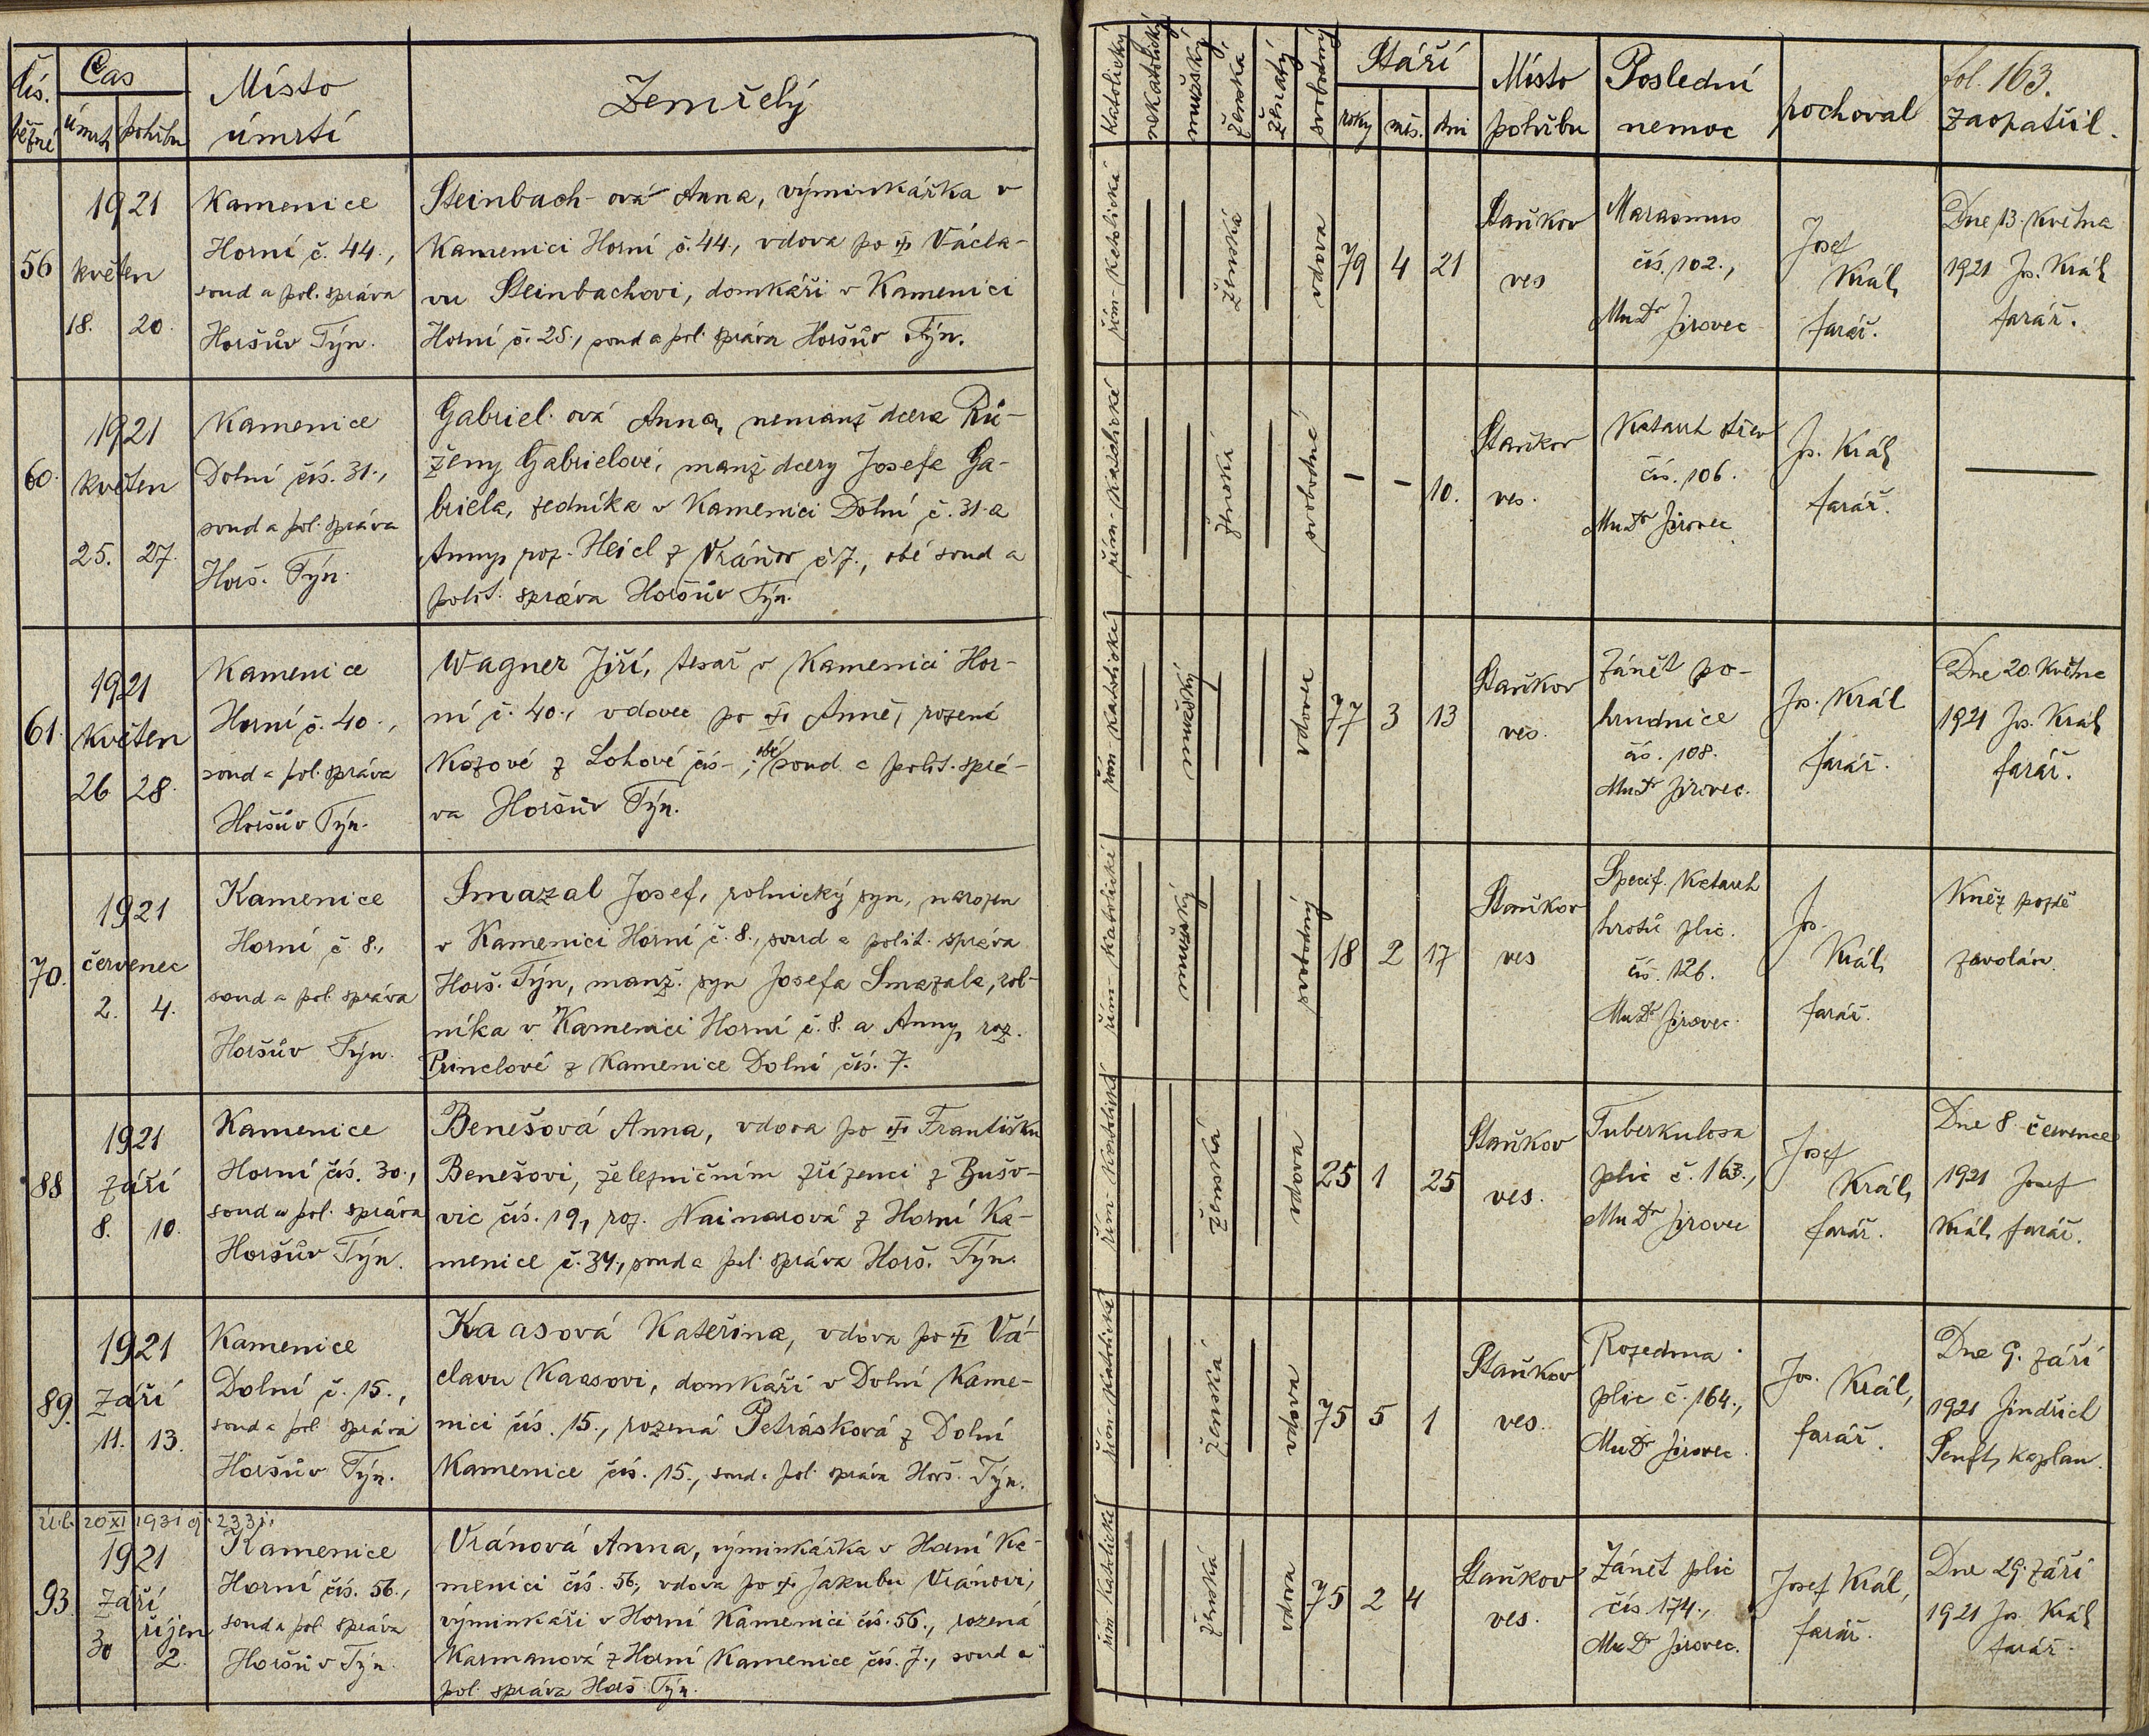 Čís. běžné
Čas
úmrtí pohřbu
Místo
úmrtí
Zemřelý
katolický
nekatolický
mužský
ženská
ženatý
svobodný
Stáří
roky měs. dni
Místo
pohřbu
Poslední
nemoc
pochoval
fol. 163.
Zaopatřil.
56
1921
květen
18. 20.
Kamenice
Horní č. 44.,
soud a pol. správa
Horšův Týn.
Steinbach-ová Anna, výminkářka v
Kamenici Horní č. 44., vdova po Václa-
vu Steinbachovi, domkáři v Kamenici
Horní č. 28., soud a pol. správa Horšův Týn.
řím-katolické
ženská
vdova
79 4 21
Staňkov
ves
Marasmus
čís. 102.,
MuDr Jirovec
Josef
Král,
farář.
Dne 13. května
1921 Js. Král,
farář.
60.
1921
květen
25. 27.
Kamenice
Dolní čís. 31.,
soud a pol. správa
Horš. Týn.
Gabriel-ová Anna, nemanž dcera Rů-
ženy Gabrielové, manž dcery Josefa Ga-
briela, zedníka v Kamenici Dolní č. 31. a
Anny, roz. Heicl z Vránov č 7., obé soud a
polit. správa Horšův Týn.
řím-katolické
ženská
svobodná
- - 10.
Staňkov
ves.
Katarrh střev
čís. 106.
MuDr Jirovec.
Js. Král,
farář.
61.
1921
Květen
26 28.
Kamenice
Horní č. 40.,
soud a pol. správa
Horšův Týn.
Wagner Jiří, tesař v Kamenici Hor-
ní č. 40., vdovec po Anně, rozené
Kozové z Lohové čís-, obé soud. a polit. sprá-
va Horšův Týn.
řím-katolické
mužský
vdovec
77 3 13
Staňkov
ves.
Zánět po-
hrudnice
čís. 108.
MuDr Jirovec.
Js. Král
farář.
Dne 20. května
1921 Js. Král,
farář.
70.
1921
červenec
2. 4.
Kamenice
Horní č. 8.,
soud a pol. správa
Horšův Týn.
Smazal Josef, rolnický syn, narozen
v Kamenici Horní č. 8., soud a polit. správa
Horš. Týn, manž. syn Josefa Smazala, rol-
níka v Kamenici Horní č. 8. a Anny, roz.
Princlové z Kamenice Dolní čís. 7.
řím-katolické
mužský
svobodný
18 2 17
Staňkov
ves
Specif. Katarrh
hrotů plic.
čís. 126.
MuDr Jirovec.
Js.
Král,
farář.
Kněz pozdě
zavolán.
88
1921
Září
8. 10.
Kamenice
Horní čís. 30.,
soud a pol. správa
Horšův Týn.
Benešová Anna, vdova po Františku
Benešovi, železničním zřízenci z Bušo-
vic čís. 19, roz. Nainarová z Horní Ka-
menice č. 34., soud a pol. správa Horš. Týn.
řím-katolické
ženská
vdova
25 1 25
Staňkov
ves.
Tuberkulosa
plic č. 163.,
MuDr Jirovec
Josef
Král,
farář.
Dne 8. července
1921 Josef
Král, farář.
89.
1921
Září
11. 13.
Kamenice
Dolní č. 15.,
soud a pol. správa
Horšův Týn.
Kaasová Kateřina, vdova po Vá-
clavu Kaasovi, domkáři v Dolní Kame-
nici čís. 15., rozená Petrásková z Dolní
Kamenice čís. 15., soud a pol. správa Horš. Týn.
řím-katolické
ženská
vdova
75 5 1
Staňkov
ves.
Rozedma
plic č. 164.,
MuDr Jirovec.
Jos. Král,
farář.
Dne 9. září
1921 Jindřich
Senft, kaplan.
20 XI 1931 čj. 233.
93.
1921
Září říjen
30 2.
Kamenice
Horní čís. 56.,
soud a pol. správa
Horšův Týn.
Vránová Anna, výminkářka v Horní Ka-
menici čís. 56., vdova po Jakubu Vránovi,
výminkáři v Horní Kamenici čís. 56., rozená
Karmanová z Horní Kamenice čís. 7., soud a
pol. správa Horš. Týn.
řím katolické
ženská
vdova
75 2 4
Staňkov
ves.
Zánět plic
čís 174.,
MuDr Jirovec.
Josef Král,
farář.
Dne 29. září
1921 Js. Král,
farář.